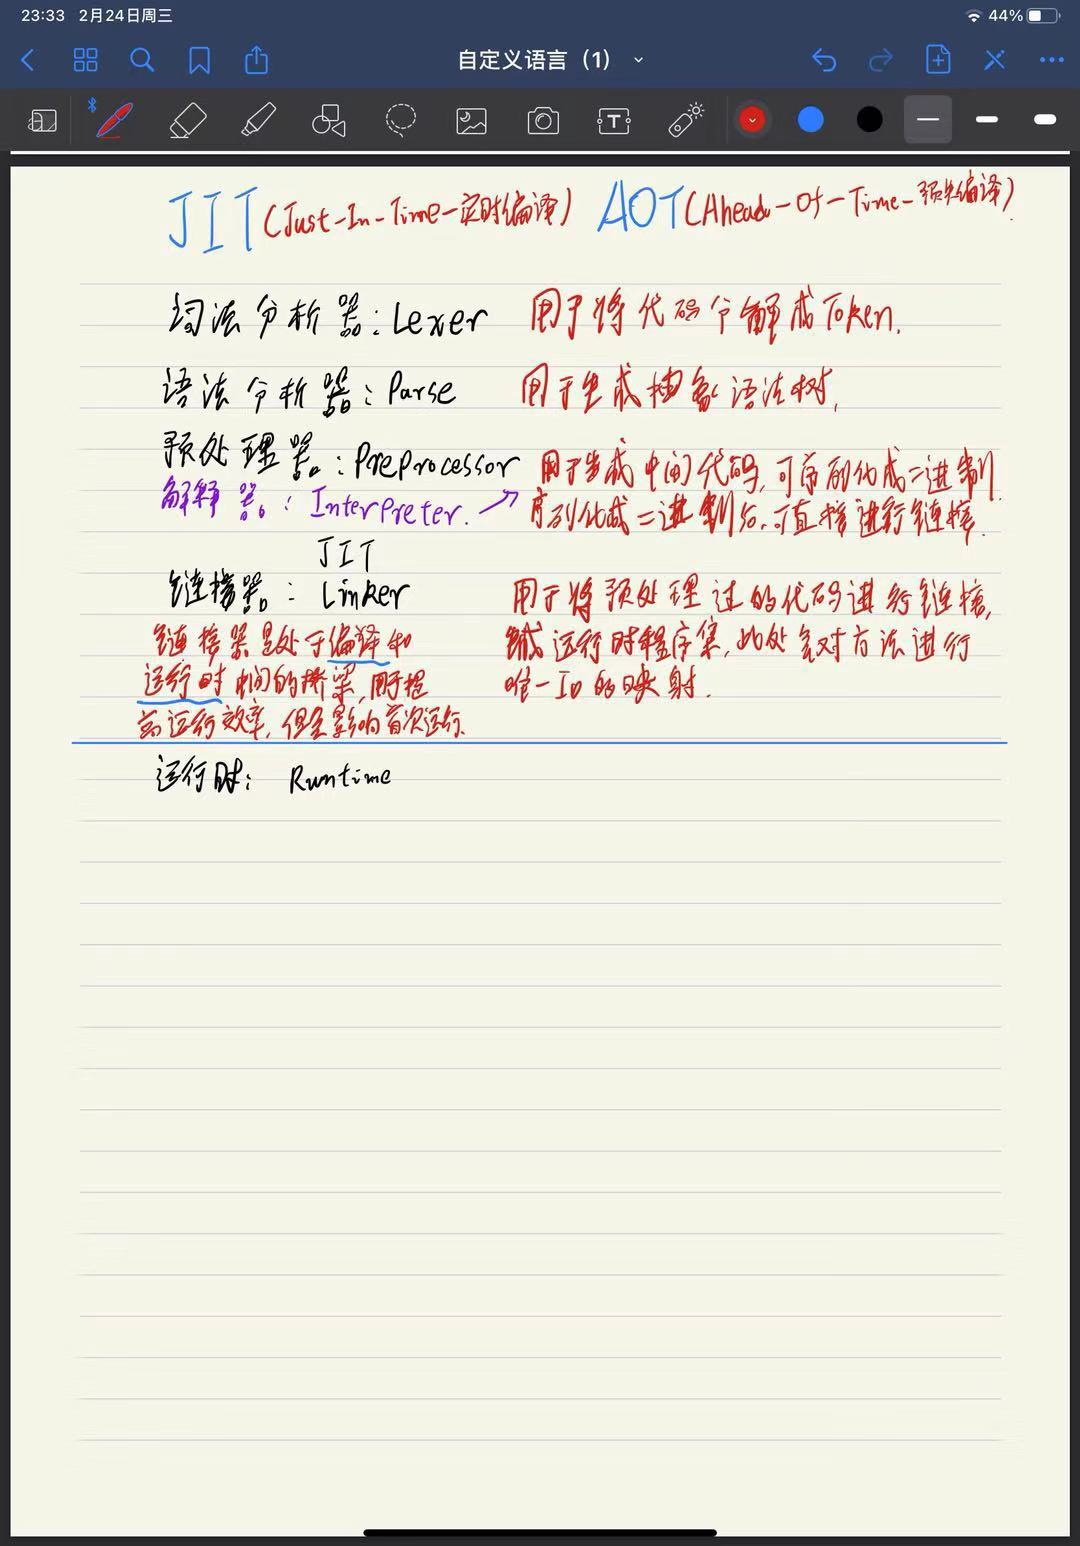 23:33 2月24日周三
44%
自定义语言（1）
T
JIT(Just-In-Time-实时编译) AOT(Ahead-Of-Time-预先编译)
词法分析器:Lexer 用于将代码分解成Token.
语法分析器:Parse 用于生成抽象语法树,
预处理器:PreProcessor 用于生成中间代码,可序列化成二进制
解释器:Interpreter. → 序列化成二进制后,可直接进行链接.
JIT
链接器: Linker 用于将预处理过的代码进行链接,
链接器是处于编译和 运行时程序集,此处会对方法进行
运行时中间的桥梁,用于提 唯一ID的映射.
高运行效率,但会影响首次运行.
运行时: Runtime